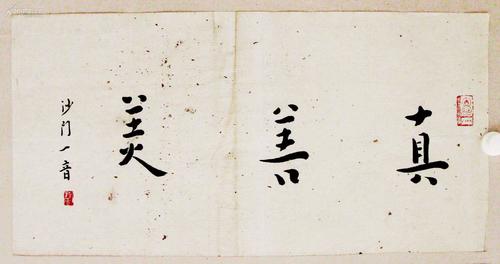 真善美
沙門一音